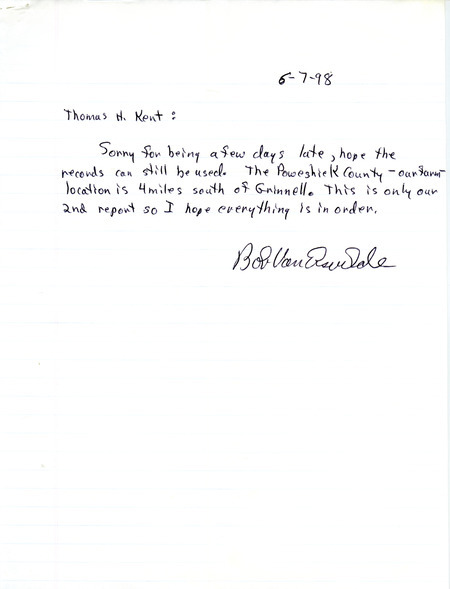 6-7-98
Thomas H. Kent :
Sorry for being a few days late, hope the
records can still be used. The Poweshiek County - our farm -
location is 4 miles south of Grinnell. This is only our
2nd report so I hope everything is in order.
Bob Van Ersvelde